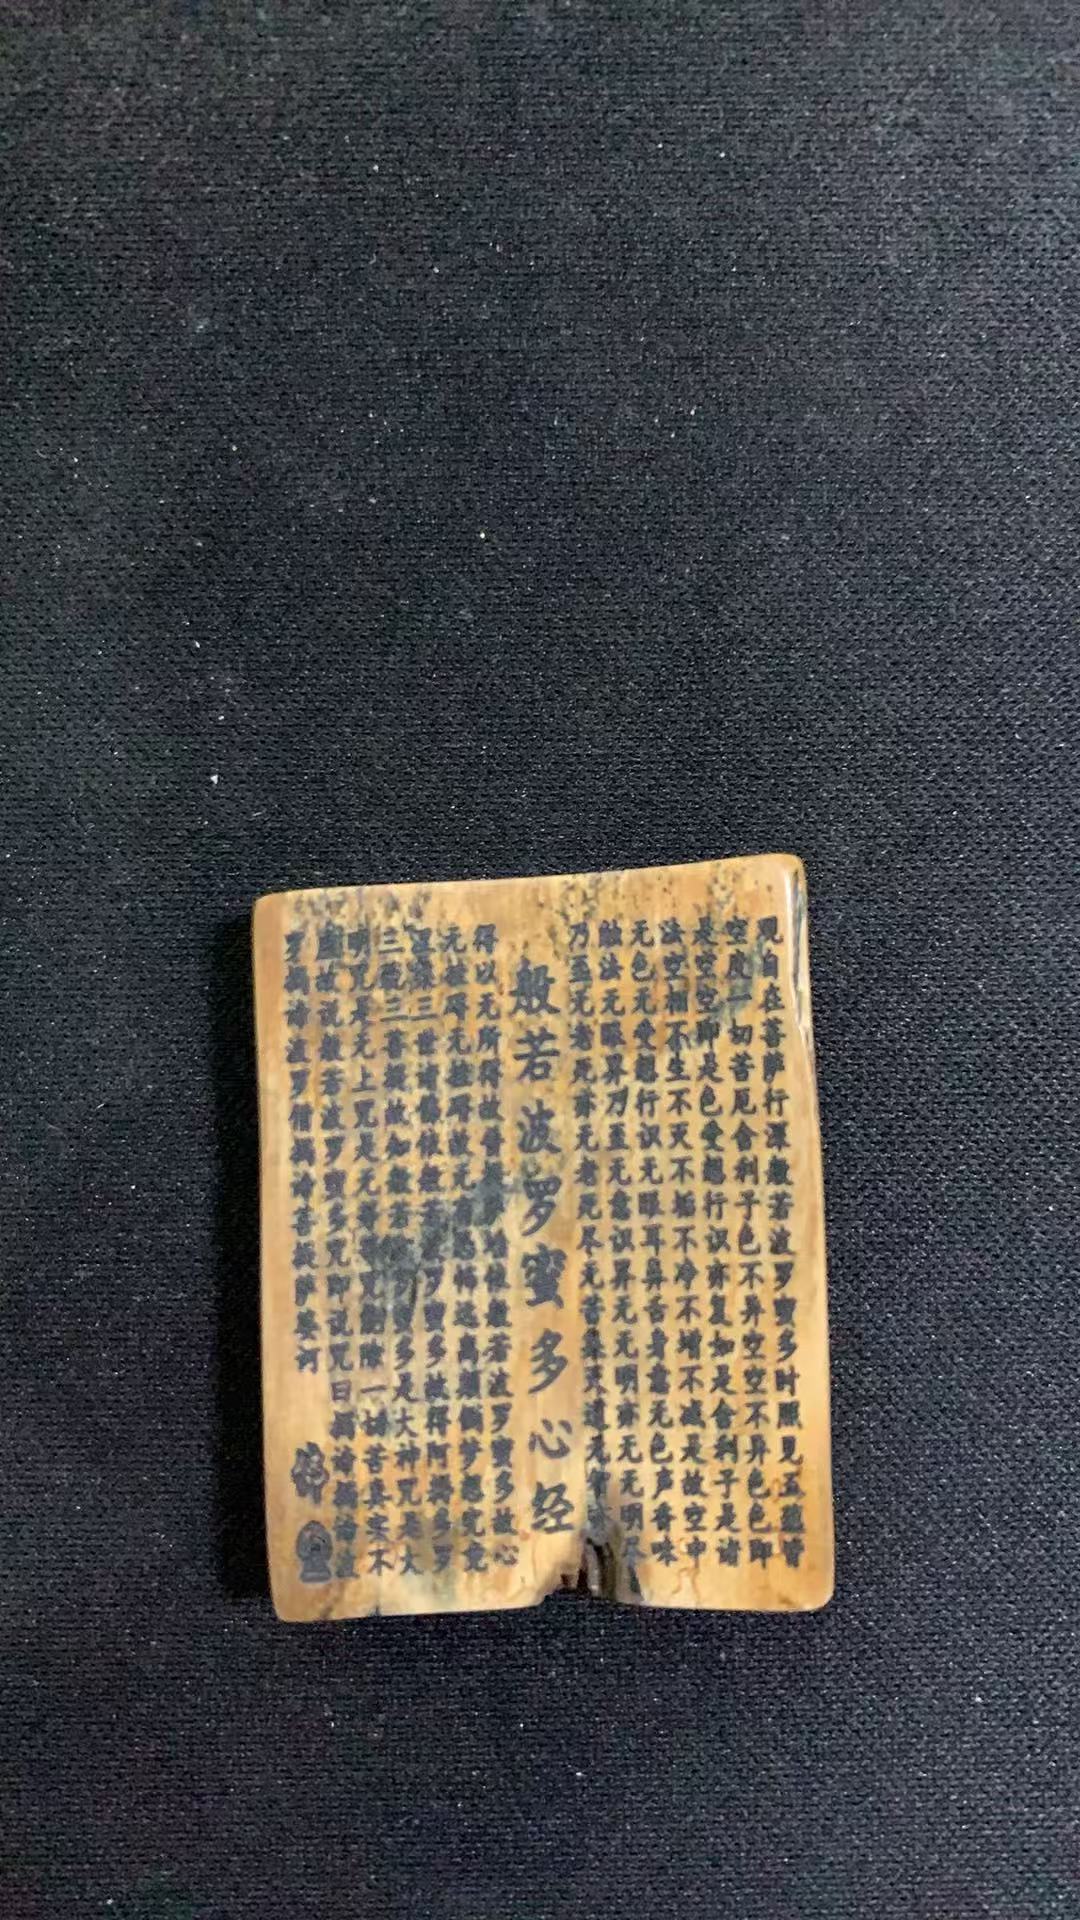 观自在菩萨行深般若波罗蜜多时照见五蕴皆
空度一切苦厄舍利子色不异空空不异色色即
是空空即是色受想行识亦复如是舍利子是诸
法空相不生不灭不垢不净不增不减是故空中
无色无受想行识无眼耳鼻舌身意无色声香味
触法无眼界乃至无意识界无无明亦无无明尽
乃至无老死亦无老死尽无苦集灭道无智亦
般若波罗蜜多心经
得以无所得故菩提萨埵依般若波罗蜜多故心
无挂碍无挂碍故无有恐怖远离颠倒梦想究竟
涅槃三世诸佛依般若波罗蜜多故得阿耨多罗
三藐三菩提故知般若波罗蜜多是大神咒是大
明咒是无上咒是无等等咒能除一切苦真实不
虚故说般若波罗蜜多咒即说咒曰揭谛揭谛波
罗揭谛波罗僧揭谛菩提萨婆诃
佛